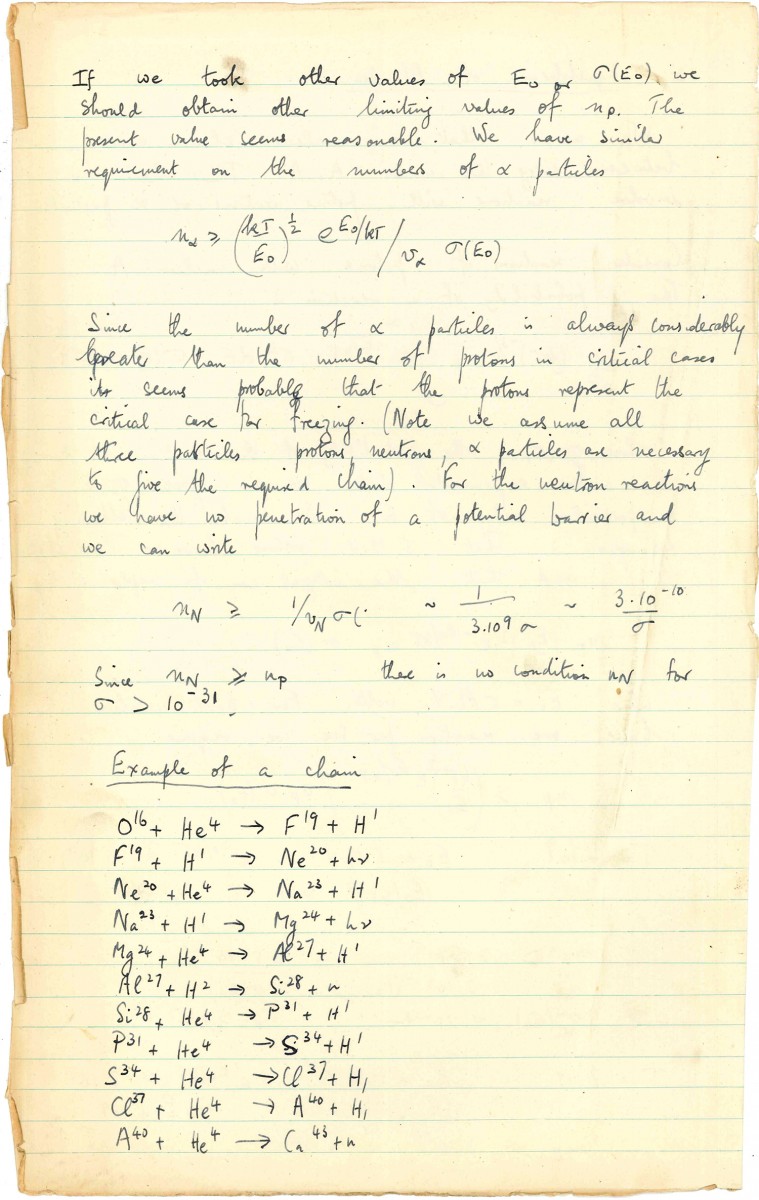 If we took other values of E₀ or σ(E₀) we
should obtain other limiting values of np. The
present value seems reasonable. We have similar
requirement on the numbers of α particles
nα ≥ (kT/E₀)^½ e^E₀/kT / vα σ(E₀)
Since the number of α particles is always considerably
greater than the number of protons in critical cases
it seems probable that the protons represent the
critical case for freezing. (Note we assume all
three particles protons, neutrons, α particles are necessary
to give the required chain). For the neutron reactions
we have no penetration of a potential barrier and
we can write
nN ≥ 1/vN σ( ~ 1/3.10⁹ σ ~ 3.10⁻¹⁰/σ
Since nN ≥ np there is no condition nN for
σ > 10⁻³¹.
Example of a chain
O¹⁶ + He⁴ → F¹⁹ + H¹
F¹⁹ + H¹ → Ne²⁰ + hν
Ne²⁰ + He⁴ → Na²³ + H¹
Na²³ + H¹ → Mg²⁴ + hν
Mg²⁴ + He⁴ → Al²⁷ + H¹
Al²⁷ + H² → Si²⁸ + n
Si²⁸ + He⁴ → P³¹ + H¹
P³¹ + He⁴ → S³⁴ + H¹
S³⁴ + He⁴ → Cl³⁷ + H₁
Cl³⁷ + He⁴ → A⁴⁰ + H₁
A⁴⁰ + He⁴ → Ca⁴³ + n